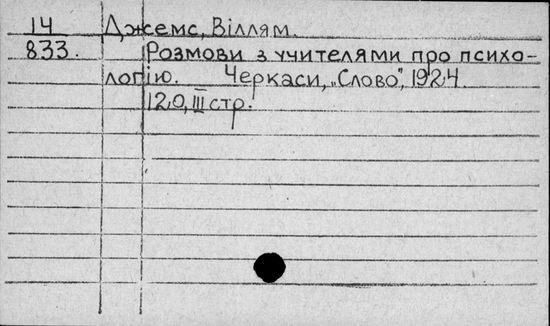 14 Джемс, Віллям.
833. Розмови з учителями про психо-
логію. Черкаси, „Слово", 1924.
120, III стр.